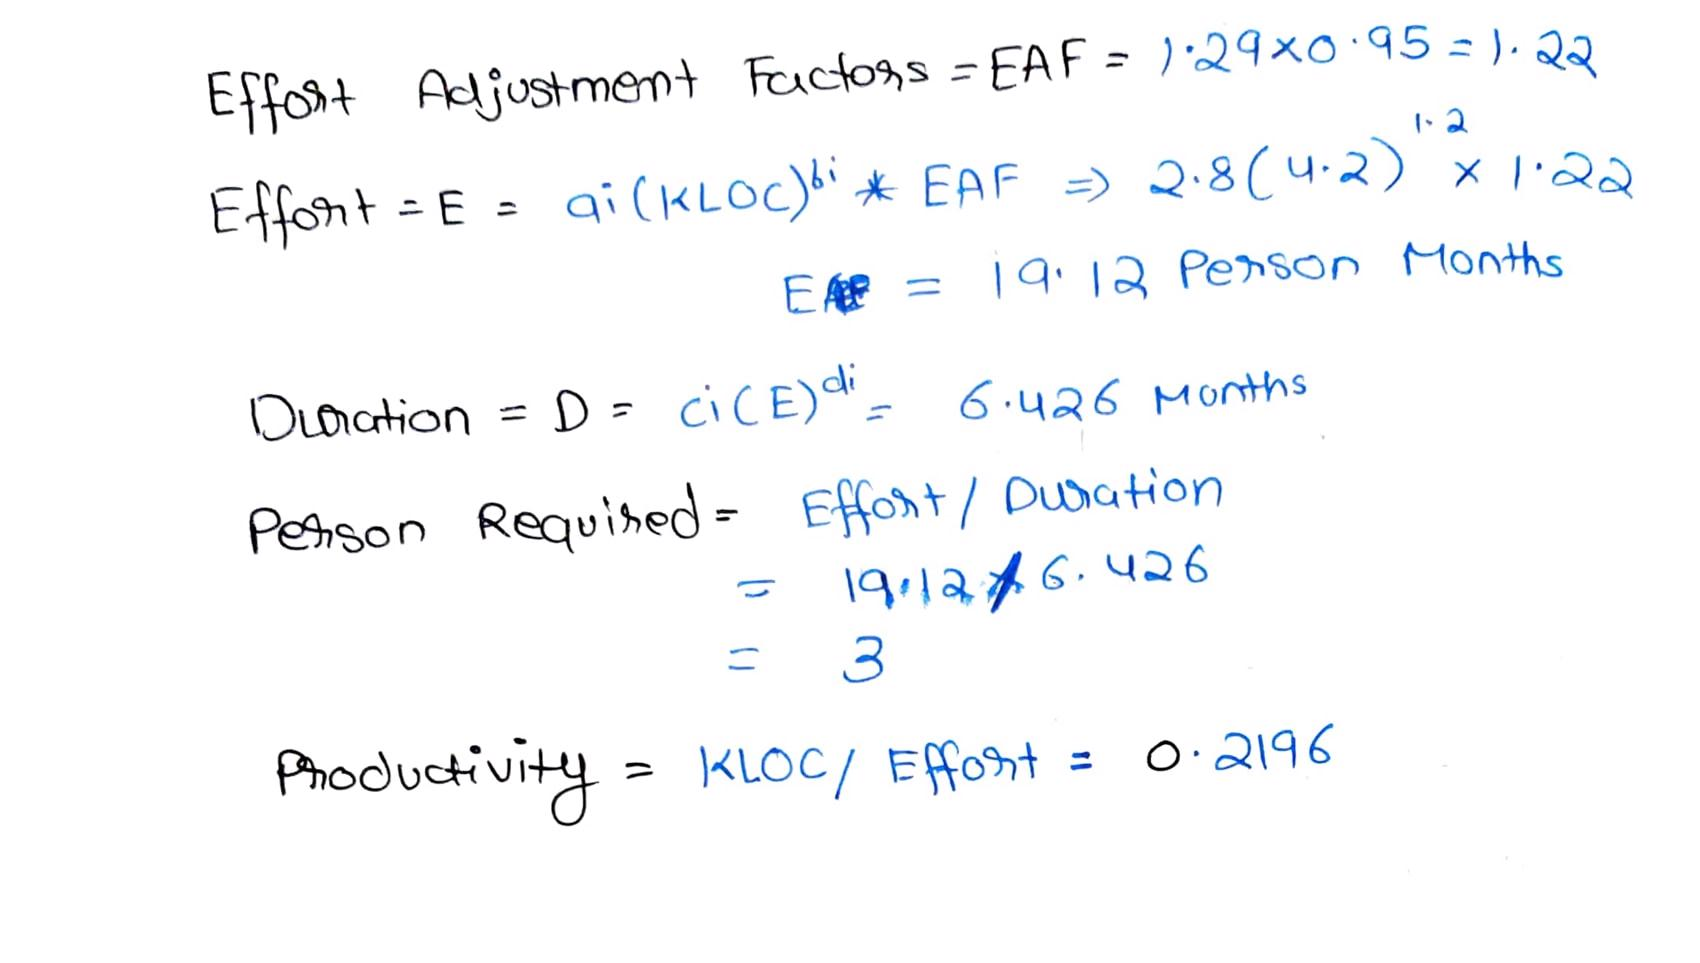 Effort Adjustment Factors = EAF = 1.29×0.95 = 1.22
Effort = E = ai(KLOC)^bi * EAF ⇒ 2.8(4.2)^1.2 × 1.22
E = 19.12 Person Months
Duration = D = ci(E)^di = 6.426 Months
Person Required = Effort / Duration
= 19.12 / 6.426
= 3
Productivity = KLOC / Effort = 0.2196